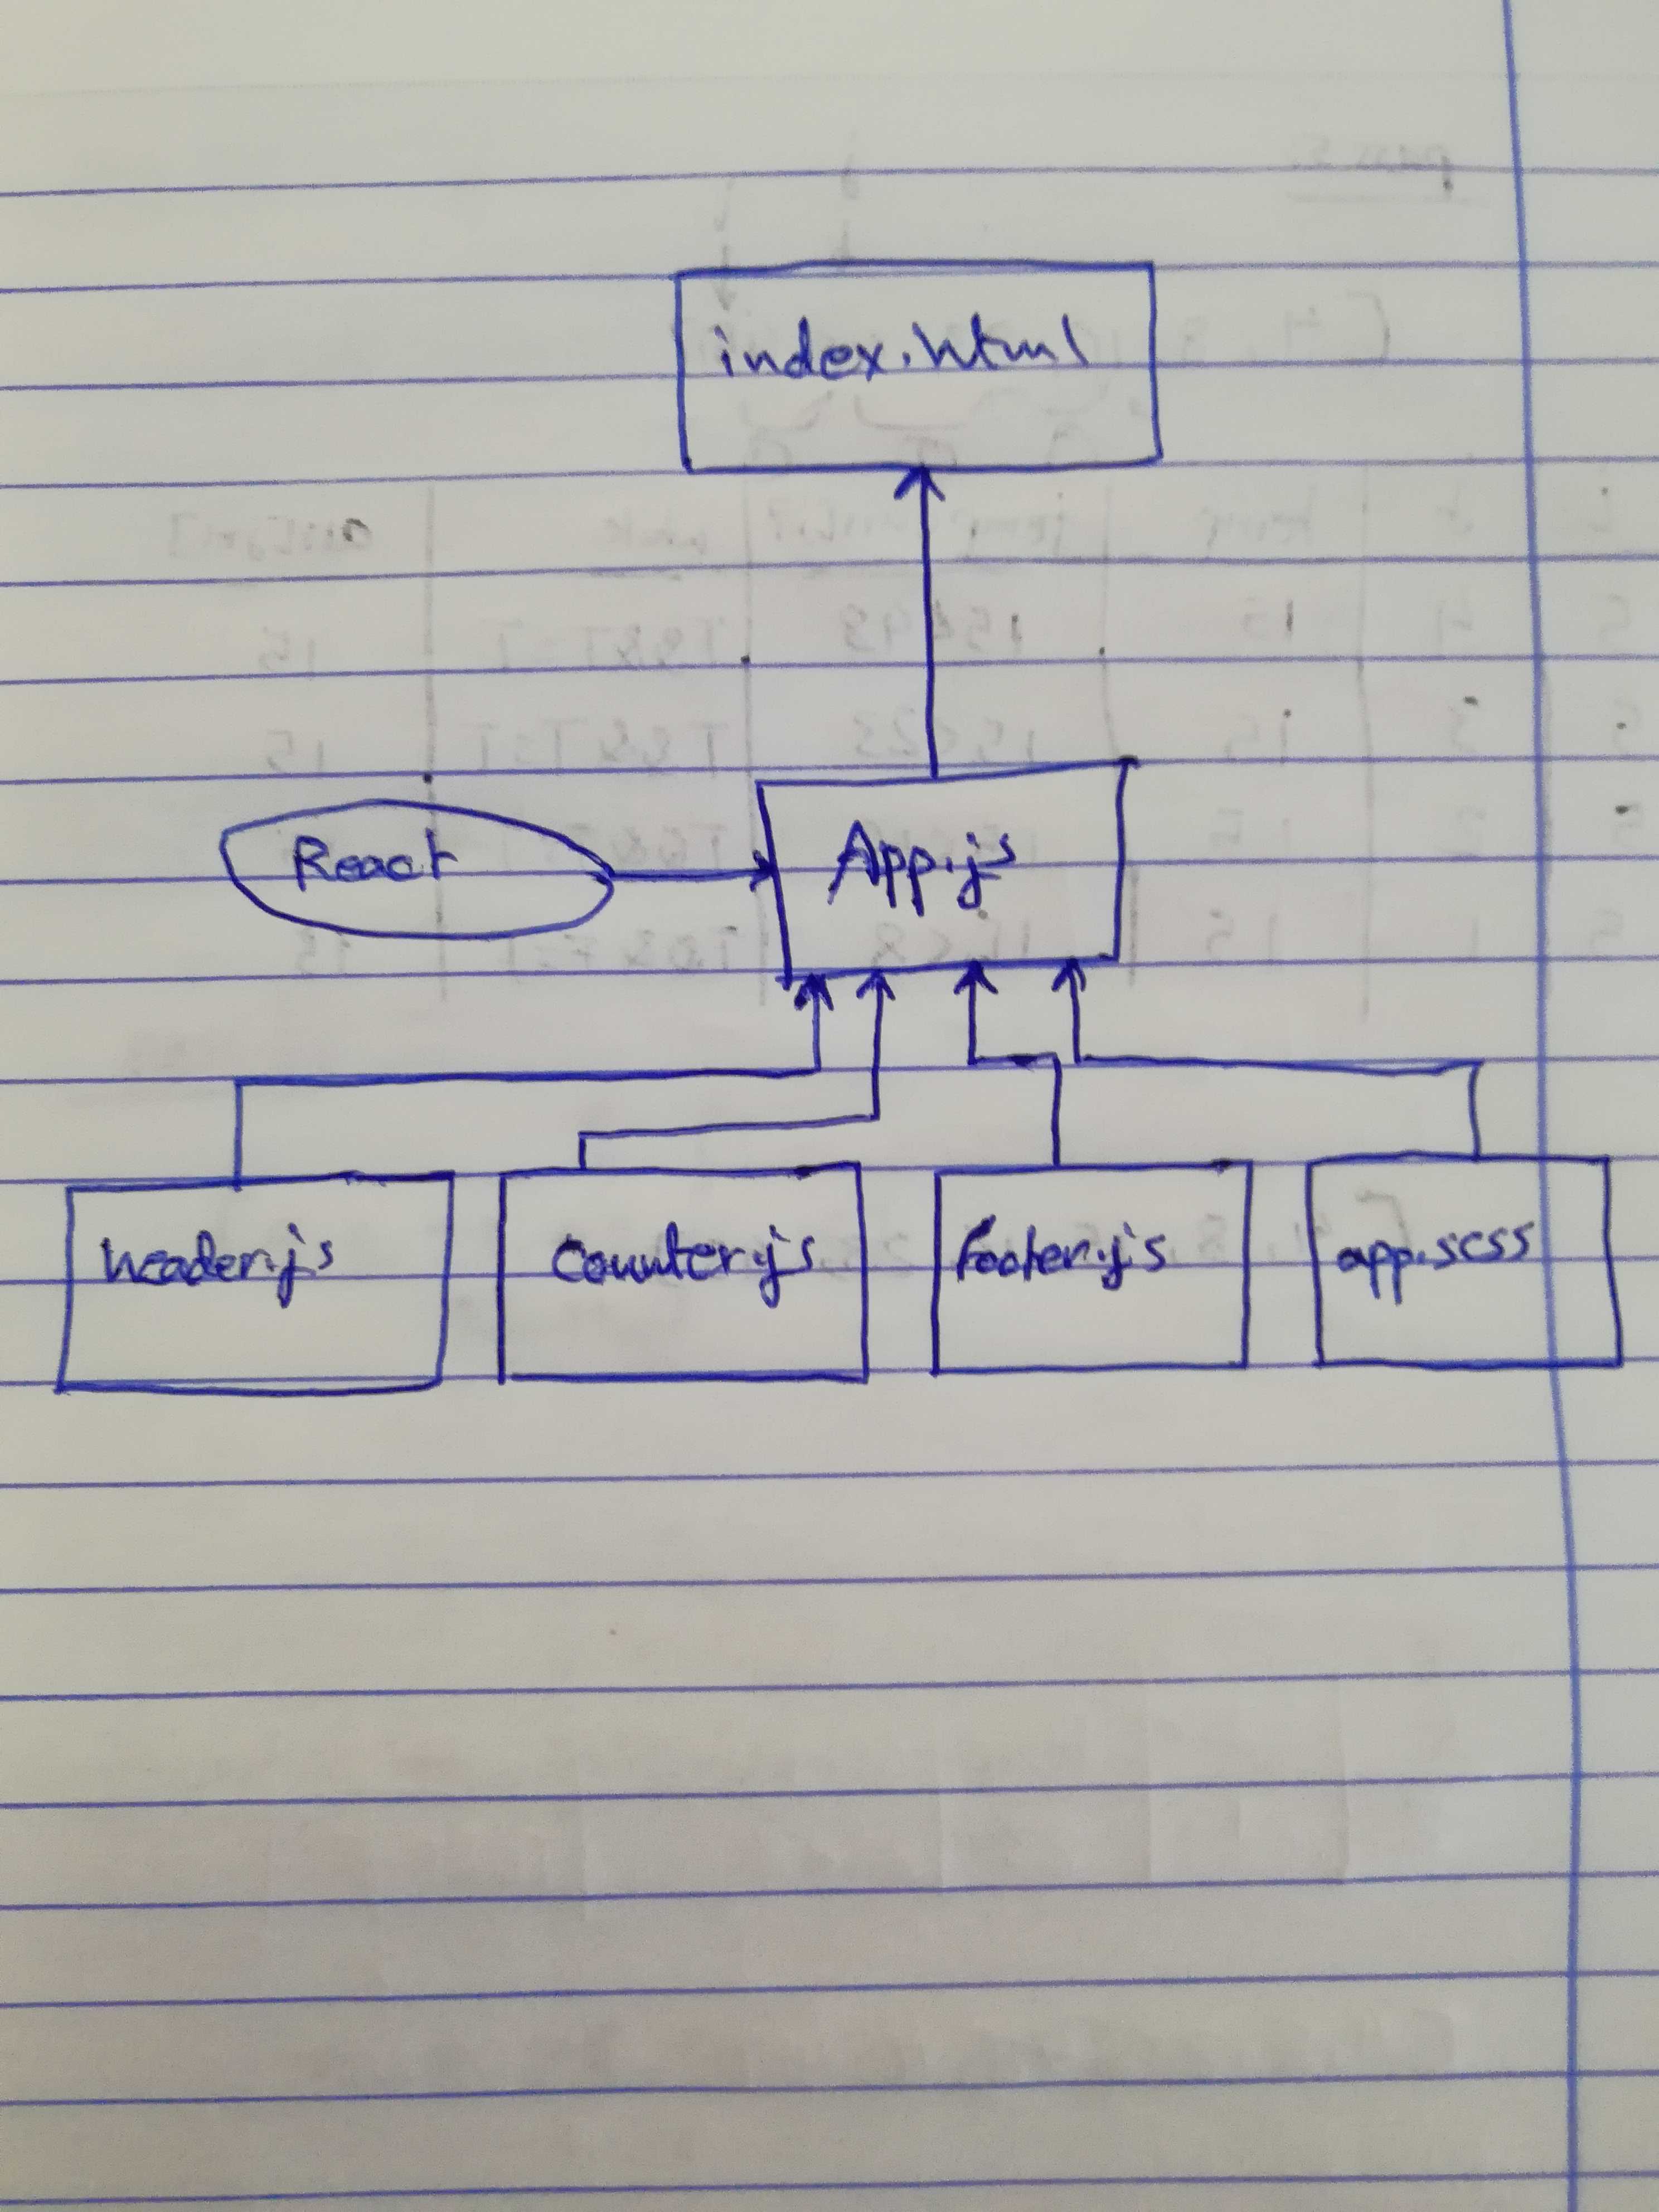 index.html
React
App.js
header.js
Counter.js
footer.js
app.scss